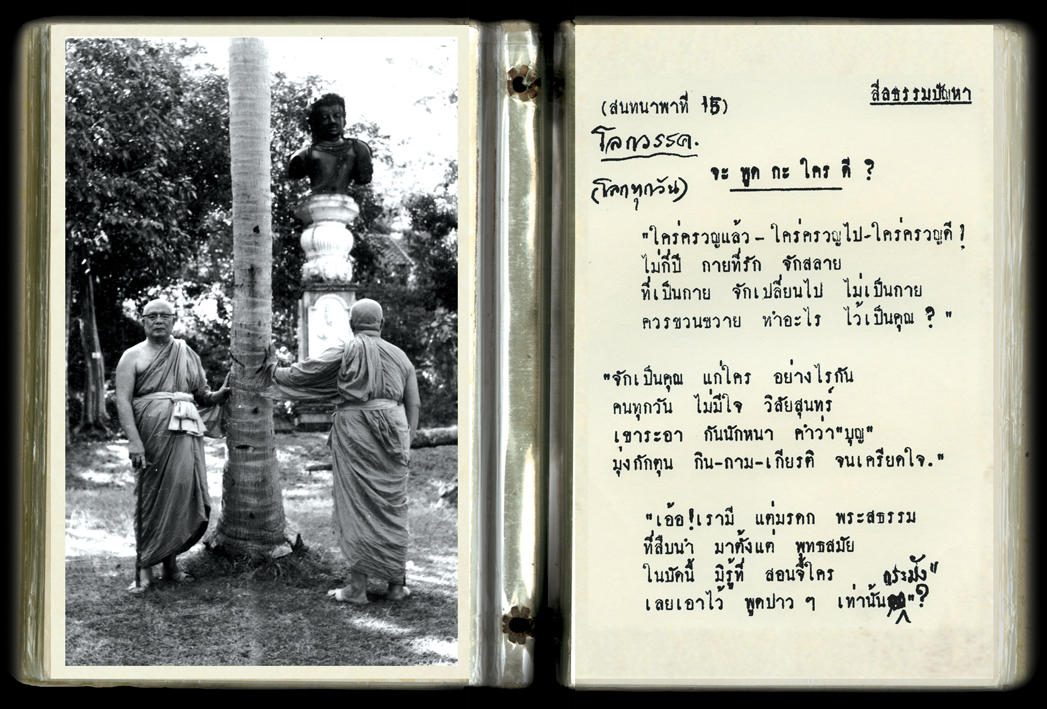 (สนทนาพาที 15)
สีลธรรมปัญหา
โลกวรรค.
จะ พูด กะ ใคร ดี ?
(โลกทุกวัน)
"ใคร่ครวญแล้ว - ใคร่ครวญไป-ใคร่ครวญดี !
ไม่กี่ปี กายที่รัก จักสลาย
ที่เป็นกาย จักเปลี่ยนไป ไม่เป็นกาย
ควรขวนขวาย ทำอะไร ไว้เป็นคุณ ? "
"จักเป็นคุณ แก่ใคร อย่างไรกัน
คนทุกวัน ไม่มีใจ วิสัยสุนทร์
เขาระอา กันนักหนา คำว่า"บุญ"
มุ่งกักตุน กิน-กาม-เกียรติ จนเครียดใจ."
"เอ้อ!เรามี แต่มรดก พระสธรรม
ที่สืบนำ มาตั้งแต่ พุทธสมัย
ในบัดนี้ มิรู้ที่ สอนจี้ใคร
เลยเอาไว้ พูดปาว ๆ เท่านั้นกระมัง"?